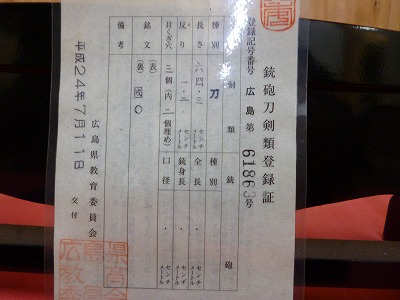 銃砲刀剣類登録証
登録記号番号 広島 第 61863 号
剣 類 銃 砲
種別 刀 種別
長さ 六四・三 センチメートル 全長 ・ センチメートル
反り 一・二 センチメートル 銃身長 ・ センチメートル
目くぎ穴 三個(内一個埋め) 口径 ・ センチメートル
銘文 (表)
(裏) 國〇
備考
平成24年7月11日 交付
広島県教育委員会